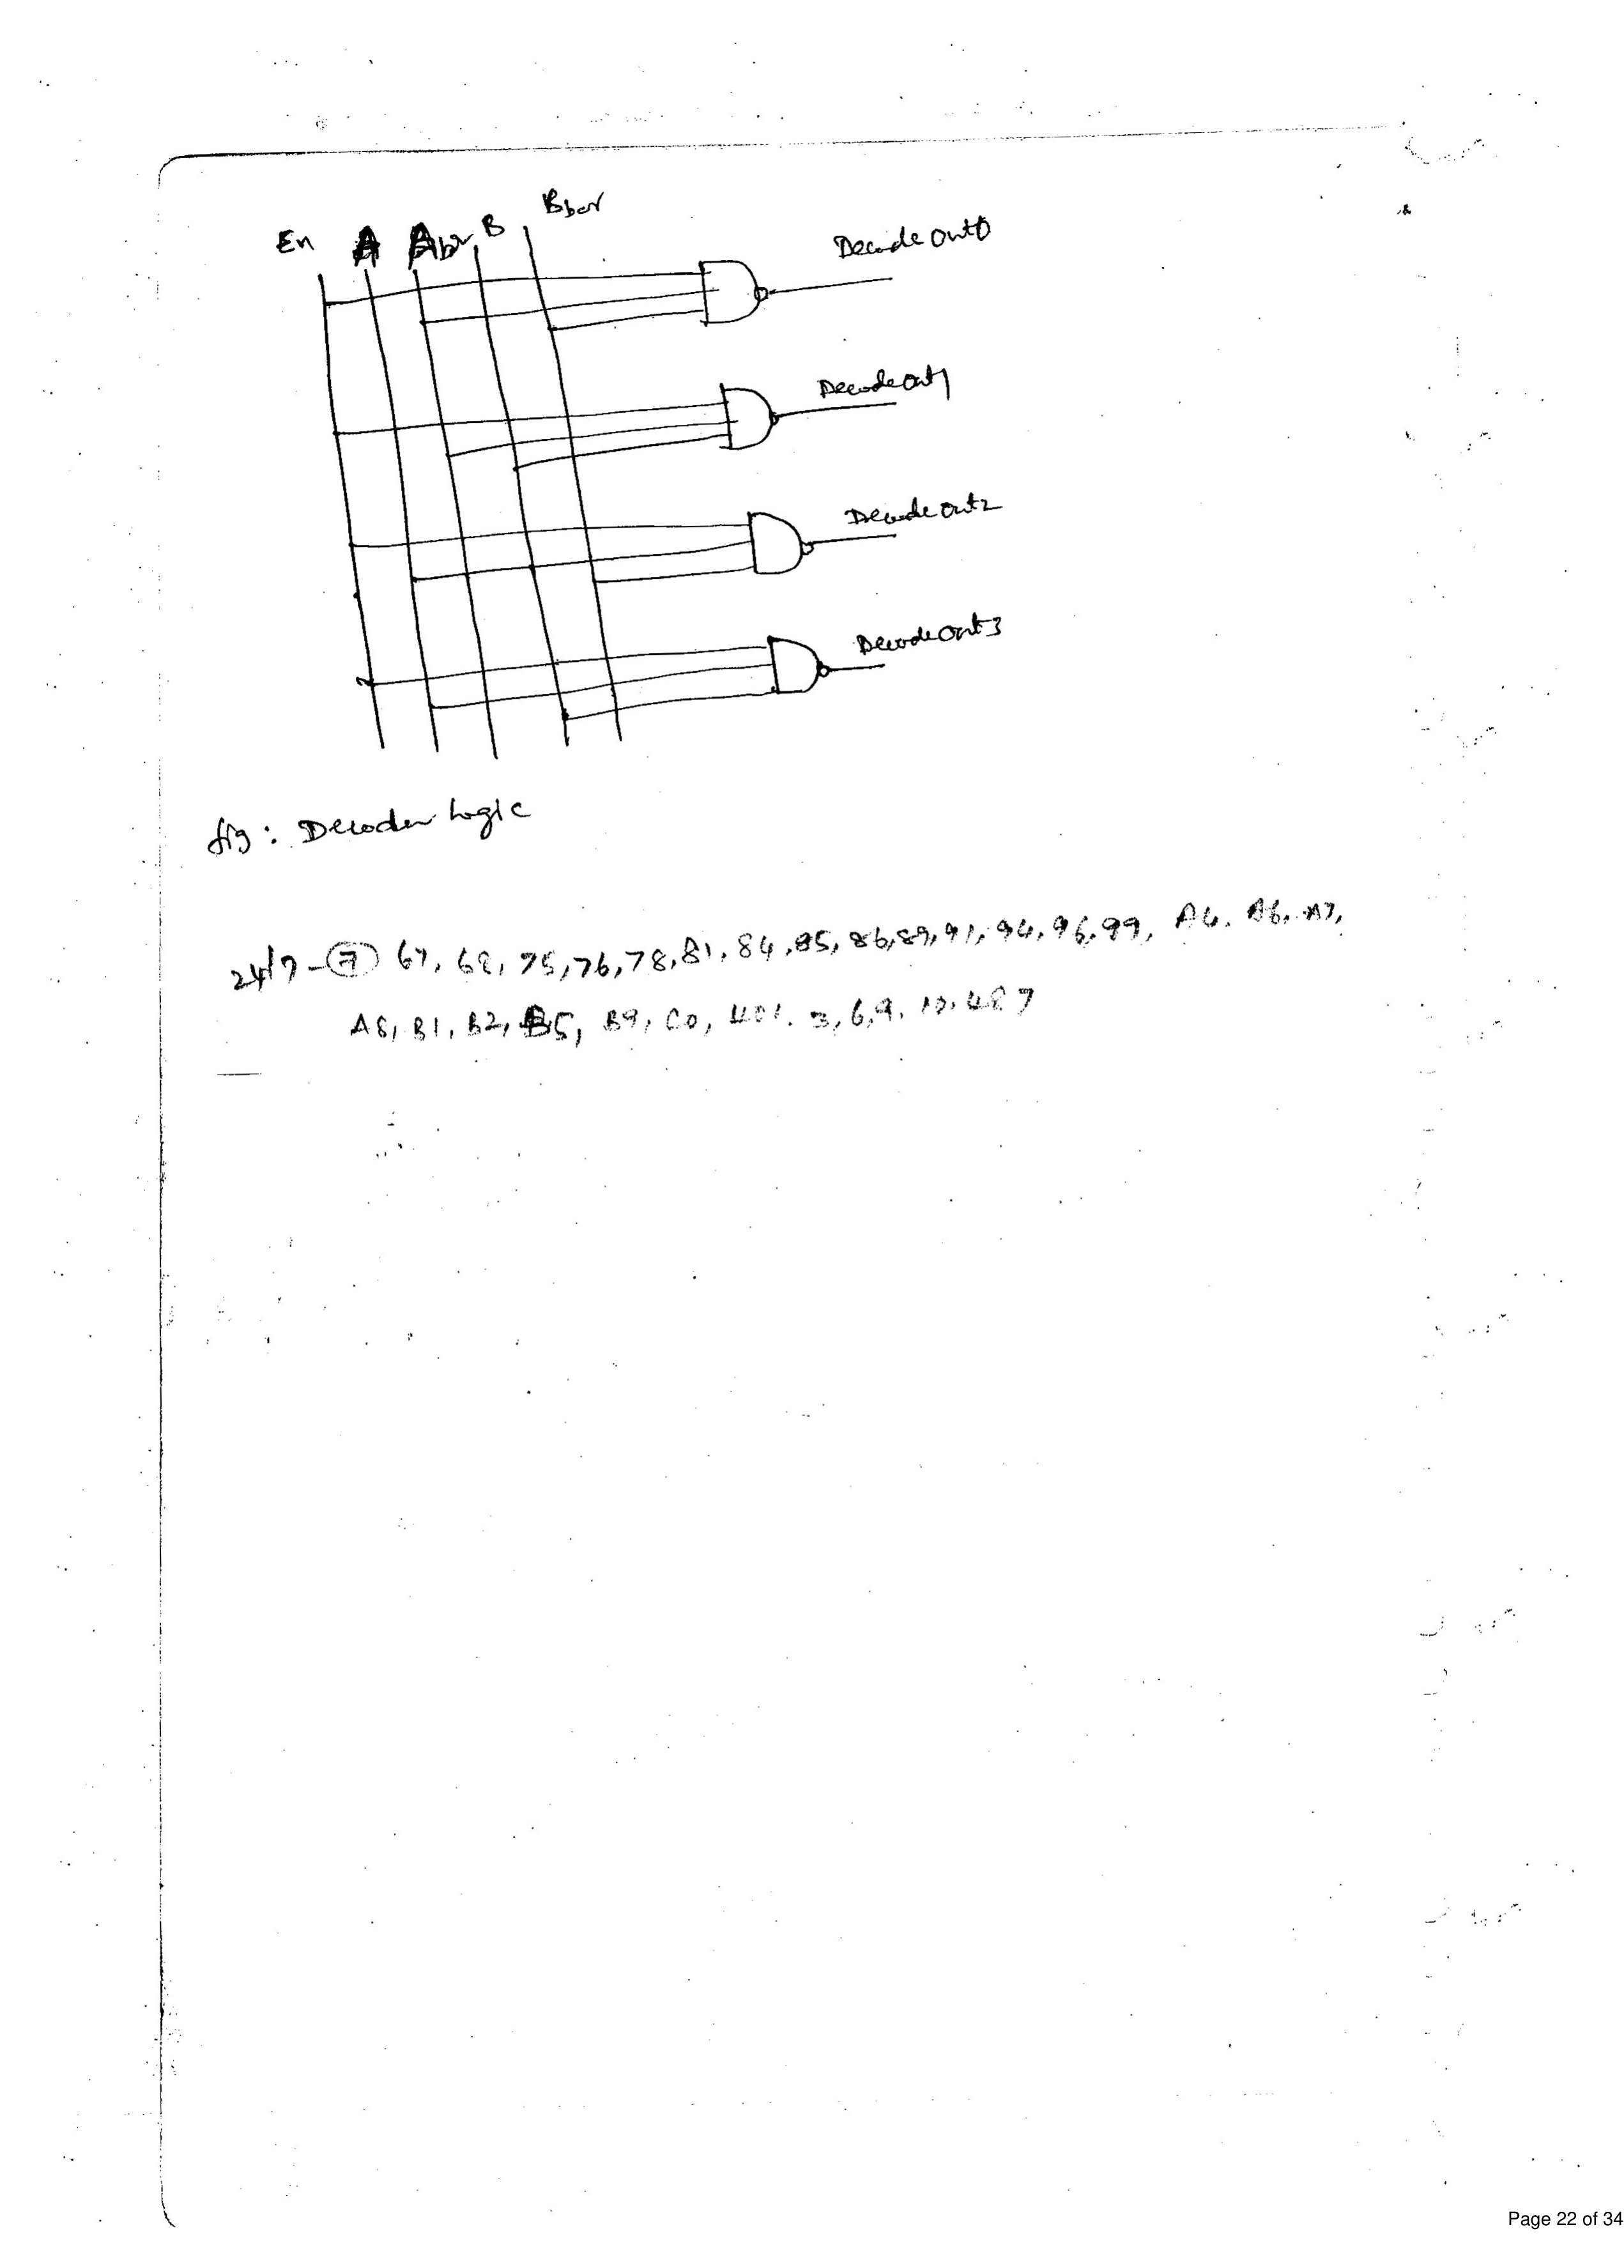 En A Abr B Bbar
Decode out0
Decode out1
Decode out2
Decode out3
fig: Decoder Logic
24/7-7 67, 68, 75, 76, 78, 81, 84, 85, 86, 89, 91, 94, 96, 99, A4, A6, A7,
A8, B1, B2, B5, B9, C0, 401, 3, 6, 9, 10, 487
Page 22 of 34